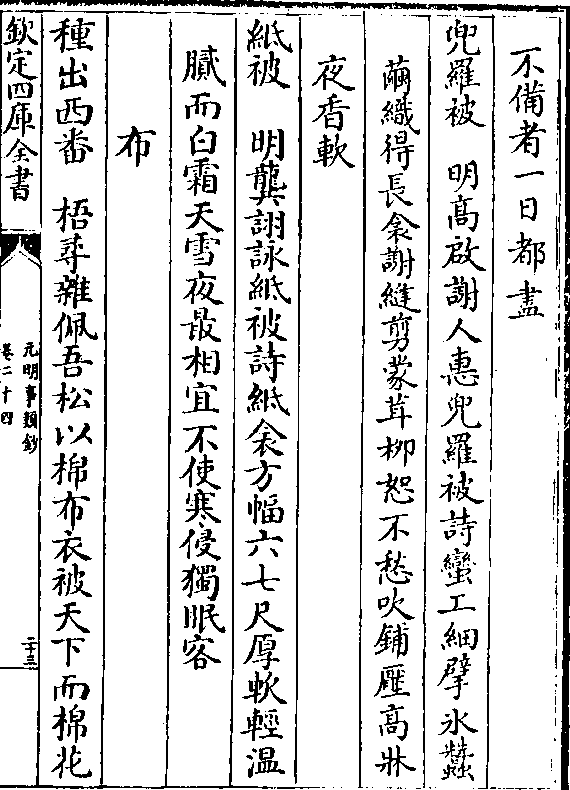 不備者一日都盡
兜羅被　明高啟謝人惠兜羅被詩蠻工細擘氷蠶
繭織得長衾謝縫剪蒙茸柳恕不愁吹鋪壓高牀
夜香軟
紙被　明龔詡詠紙被詩紙衾方幅六七尺厚軟輕温
膩而白霜天雪夜最相宜不使寒侵獨眠客
布
種出西番　梧尋雜佩吾松以棉布衣被天下而棉花
欽定四庫全書
元明事類鈔
卷二十四
二十三